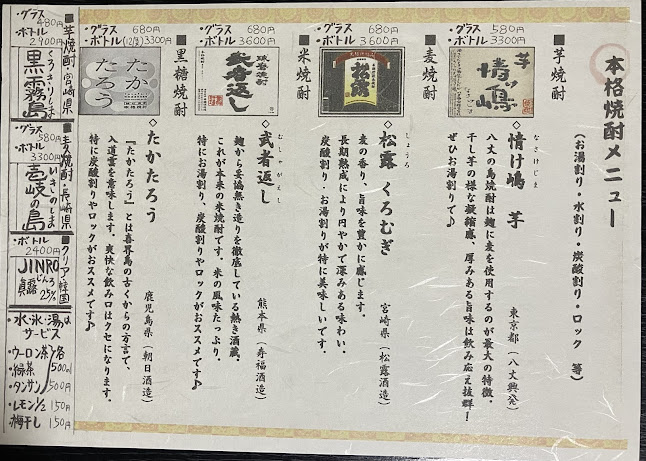 本格焼酎メニュー
(お湯割り・水割り・炭酸割り・ロック 等)
■芋焼酎
・グラス 580円
・ボトル 3300円
芋
情け嶋
◇情け嶋 芋
なさけじま
東京都(八丈興発)
八丈の島焼酎は麹に麦を使用するのが最大の特徴。
干し芋の様な凝縮感、厚みある旨味は飲み応え抜群!
ぜひお湯割りで♪
■麦焼酎
・グラス 680円
・ボトル 3600円
松露
◇松露 くろむぎ
しょうろ
宮崎県(松露酒造)
麦の香り、旨味を豊かに感じます。
長期熟成により円やかで深みある味わい。
炭酸割り・お湯割りが特に美味しいです。
■米焼酎
・グラス 680円
・ボトル 3600円
球磨焼酎
武者返し
◇武者返し
むしゃがえし
熊本県(寿福酒造)
麹から妥協無き造りを徹底している熱き酒蔵。
これが本来の米焼酎です。米の風味たっぷり。
特にお湯割り、炭酸割りやロックがおススメです♪
■黒糖焼酎
・グラス 680円
・ボトル(12度) 3300円
たかたろう
◇たかたろう
鹿児島県(朝日酒造)
『たかたろう』とは喜界島の古くからの方言で、
入道雲を意味します。爽快な飲み口はクセになります。
特に炭酸割りやロックがおススメです♪
■芋焼酎・宮崎県
・グラス 480円
・ボトル 2900円
黒霧島
くろきりしま
■麦焼酎・長崎県
・グラス 580円
・ボトル 3300円
壱岐の島
いきのしま
■クリア・韓国
・ボトル 2400円
JINRO
眞露 じんろ 25%
・水、氷、湯は
サービス
・ウーロン茶 各
・緑茶 500ml
・タンサン 500円
・レモン1/2 150円
・梅干し 150円